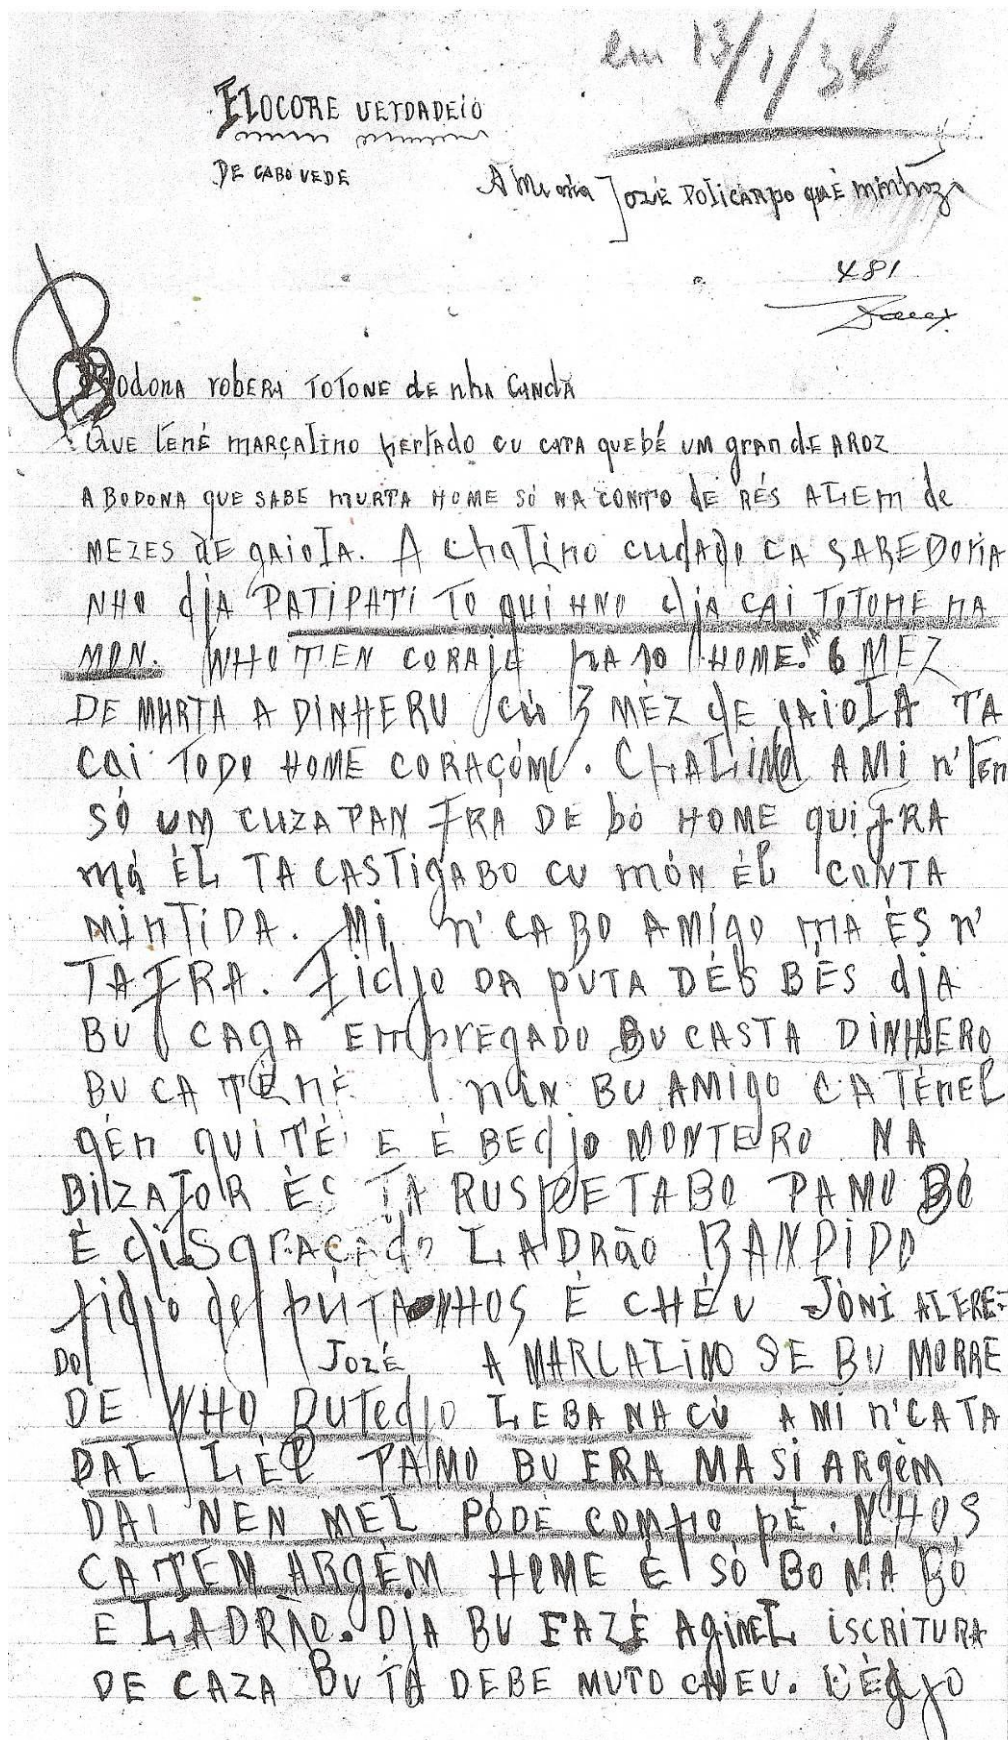 em 13/1/34
FLOCORE VERDADEIO
DE CABO VEDE
A Memória JOZÉ POLICARPO QUÉ minhoz
481
Bodona robera TOTONE de nha CANDA
QUE tené MARÇALINO pertado cu cara quebé um gran de AROZ
A BODONA QUE SABE MURTA HOME SÓ NA CONTO de RÉS ALEM de
MEZES dE gaioLA. A chaLino cudado CA SABEDORIA
NHO djA PATIPATI TO QUI HNO djA CAI TOTONE NA
MON. NHO TEN CORAJE PA 10 HOME. MA 6 MEZ
DE MURTA A DINHERU CU 3 MÉZ dE gAioLA TA
CAi TODO HOME CORAÇÓM. CHALINO AMi n'ten
SÓ UM CUZA PAN FRA DE bó HOME QUI FRA
má ÉL TA CASTiGABO CU MÓN ÉL CONTA
MINTIDA. Mi n' CA BO AMIGO MA ÉS n'
TA FRA. Fidjo DA PUTA DÉS BÉS djA
BU CAGA EMPREGADO BU CASTA DINHERO
BU CA TENÉ nin BU AMigo CA TÉNEL
gén QUI TÉ E É BEdjo MONTERO NA
DIZAFOR ÉS TA RUSPETABO PAMO BÓ
É diSgRAÇAdo LADRÃO BANDIDO
fidjo de PUTA NHOS É CHÉU JÓNI ALFRE-
DO JOZÉ A MARCALINO SE BU MORRE
DE NHO BUTEDJO LEBA NA CÚ A Mi n'CA TA
DAL LÉL PAMO BU ERA MA Si ARGÉM
DAI NEN MEL PÓDE COMPO PÉ. NHOS
CA TEM ARGÉM HOME É SÓ BO MA BÓ
E LADRÃO. DJA BU FAZÉ AGINEL ISCRITURA
DE CAZA BU TA DEBE MUTO CHEU. BÉdjo